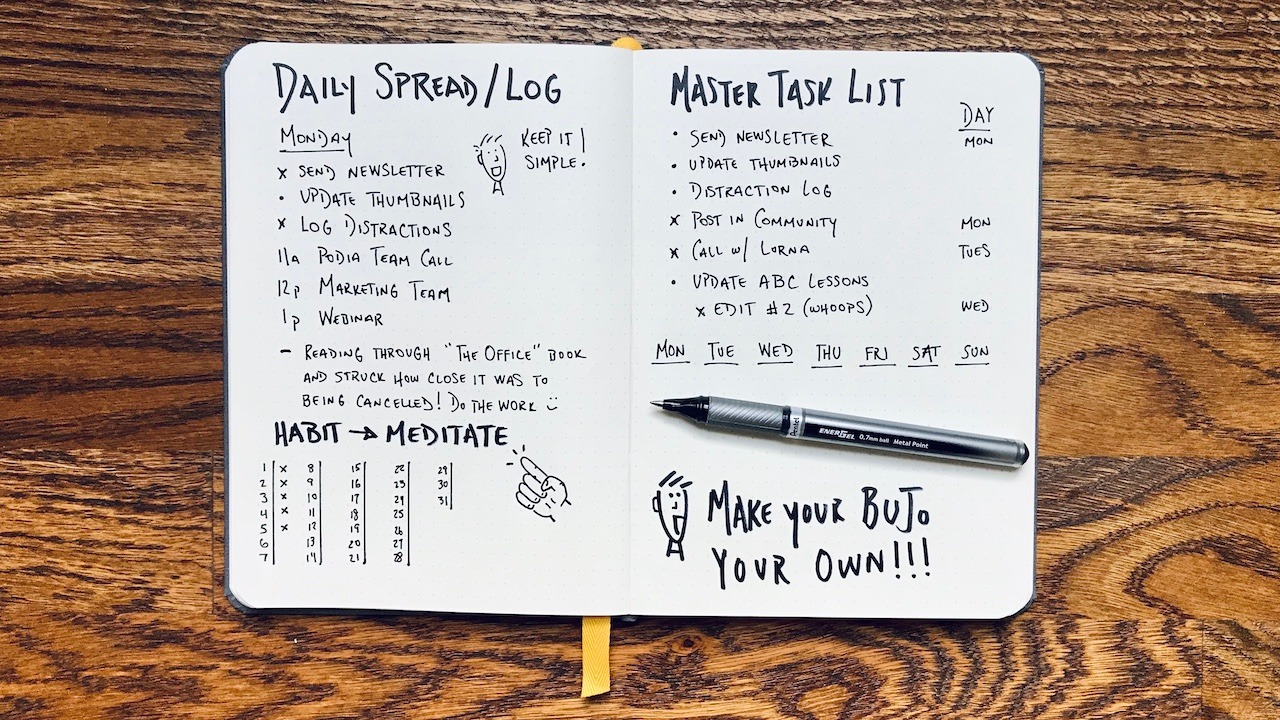 DAILY SPREAD/LOG
MONDAY
KEEP IT
SIMPLE!
x SEND NEWSLETTER
• UPDATE THUMBNAILS
x LOG DISTRACTIONS
11a PODIA TEAM CALL
12p MARKETING TEAM
1p WEBINAR
– READING THROUGH "THE OFFICE" BOOK
AND STRUCK HOW CLOSE IT WAS TO
BEING CANCELLED! DO THE WORK :)
HABIT → MEDITATE
1 x 8 15 22 29
2 x 9 16 23 30
3 x 10 17 24 31
4 x 11 18 25
5 x 12 19 26
6 13 20 27
7 14 21 28
MASTER TASK LIST
DAY
• SEND NEWSLETTER MON
• UPDATE THUMBNAILS
• DISTRACTION LOG
x POST IN COMMUNITY MON
x CALL W/ LORNA TUES
• UPDATE ABC LESSONS
x EDIT #2 (WHOOPS) WED
MON TUE WED THU FRI SAT SUN
Pentel ENERGEL 0.7mm ball Metal Point
MAKE YOUR BUJO
YOUR OWN!!!